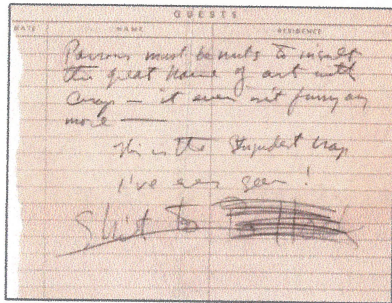 GUESTS
DATE NAME RESIDENCE
Parsons must be nuts to insult
the great name of art with
crap — it even isn't funny any
more —
This is the Stupidest crap
I've ever seen!
Shit to